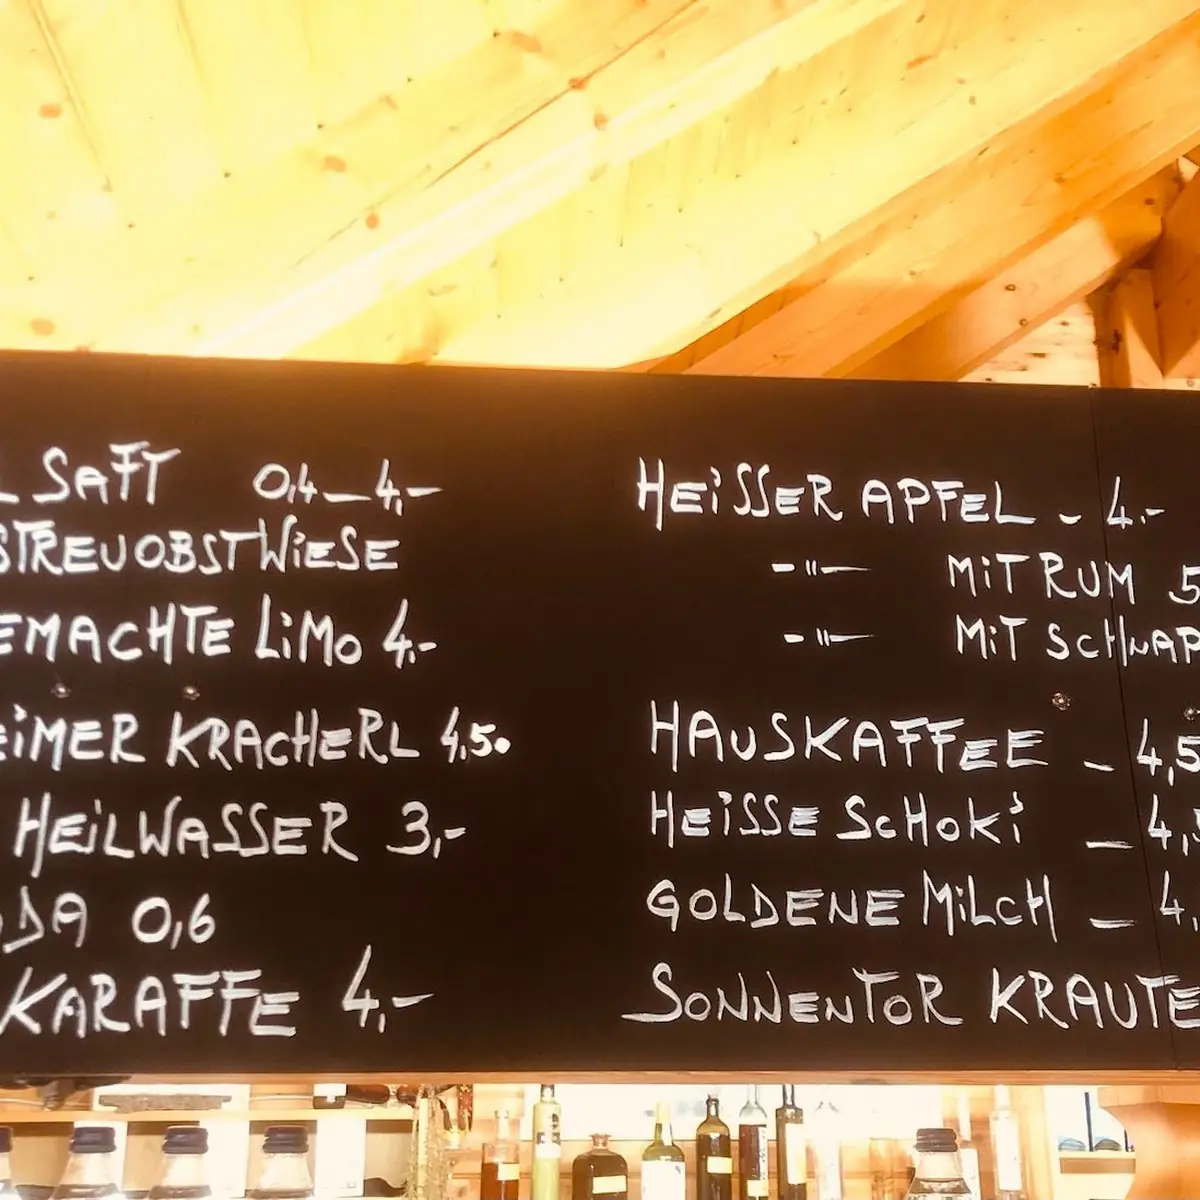 SAFT 0,4 — 4,-
STREUOBSTWIESE
EMACHTE LiMO 4,-
EiMER KRACHERL 4,50
HEiLWASSER 3,-
DA 0,6
KARAFFE 4,-
HEiSSER APFEL - 4,-
-"- MiT RUM 5
-"- MiT SCHNAP
HAUSKAFFEE - 4,5
HEiSSE SCHOKi - 4,5
GOLDENE MiLCH - 4,
SONNENTOR KRAUTE